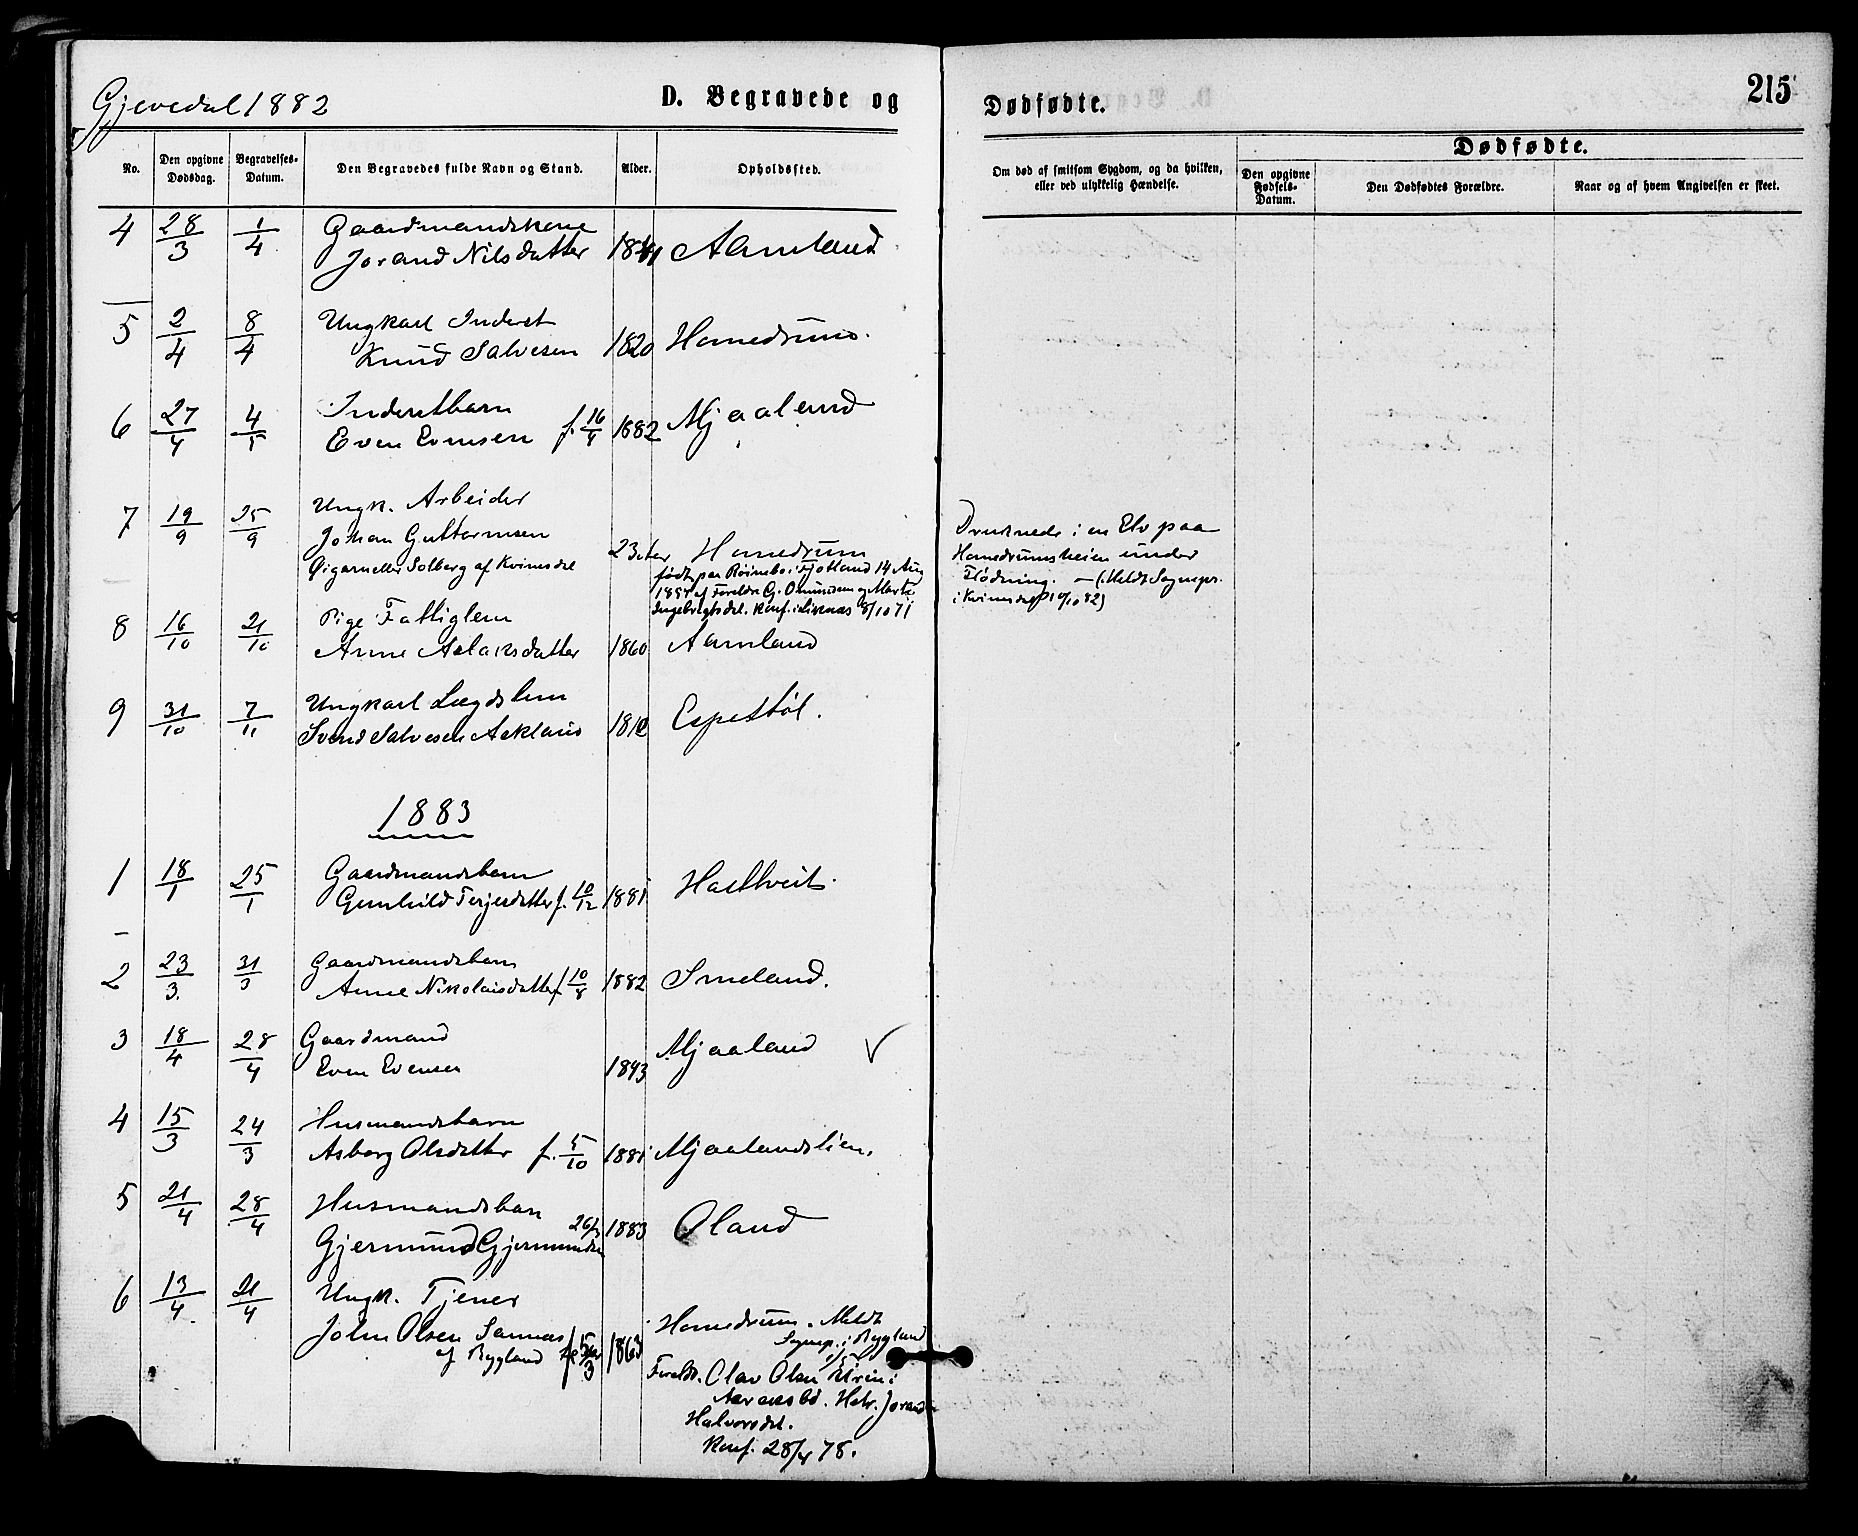 Gjevedal 1882
D. Begravede og
Dødfødte.
215
No.
Den opgivne Dødsdag.
Begravelses-Datum.
Den Begravedes fulde Navn og Stand.
Alder.
Opholdssted.
Om død af smitsom Sygdom, og da hvilken, eller ved ulykkelig Hændelse.
Dødfødte.
Den opgivne Fødsels-Datum.
Den Dødfødtes Forældre.
Naar og af hvem Angivelsen er skeet.
4 28/3 1/4 Gaardmandskone
Jorand Nilsdatter Aamland
5 2/4 8/4 Ungkarl Inderst
Knud Salvesen 1820 Homedrum.
6 27/4 4/5 Inderstbarn
Even Evensen f. 16/4 1882 Mjaaland
7 19/9 25/9 Ungk. Arbeider
Johan Guttormsen
af Kvinesdal 23 Aar Homedrum
født paa Røinebo i Fjotland 14 Aug
af Foreldre G. Omundsen og Marte
Ingebrigtsdt. Konf. i Liknas 8/10 71
Druknede i en Elv paa
Homedrumsheien under
Flødning. — (Meldt Sognepr.
i Kvinesdal 10/10 82)
8 16/10 21/10 Pige Fattiglem
Anne Aslaksdatter 1860 Aamland
9 31/10 7/11 Ungkarl Lægdslem
Svend Salvesen Askland Espestøl.
1883
1 18/1 25/1 Gaardmandsbarn
Gunhild Terjesdatter f. 10/12 1881 Hasthveit.
2 23/3 31/3 Gaardmandsbarn
Anne Nikolaisdatter f. 10/8 1882 Smeland.
3 18/4 28/4 Gaardmand
Even Evensen 1843 Mjaaland ✓
4 15/3 24/3 Husmandsbarn
Asborg Olsdatter f. 5/10 1881 Mjaalandslien.
5 21/4 28/4 Husmandsbarn
Gjermund Gjermundsen 1883 Oland
6 13/4 21/4 Ungk. Tjener
John Olsen Sannes
af Bygland 1863 Homedrum. Meldt
Sognep. i Bygland
Foreldr. Olav Olsen
Halvorsdt.
Konf. 28/4 78.